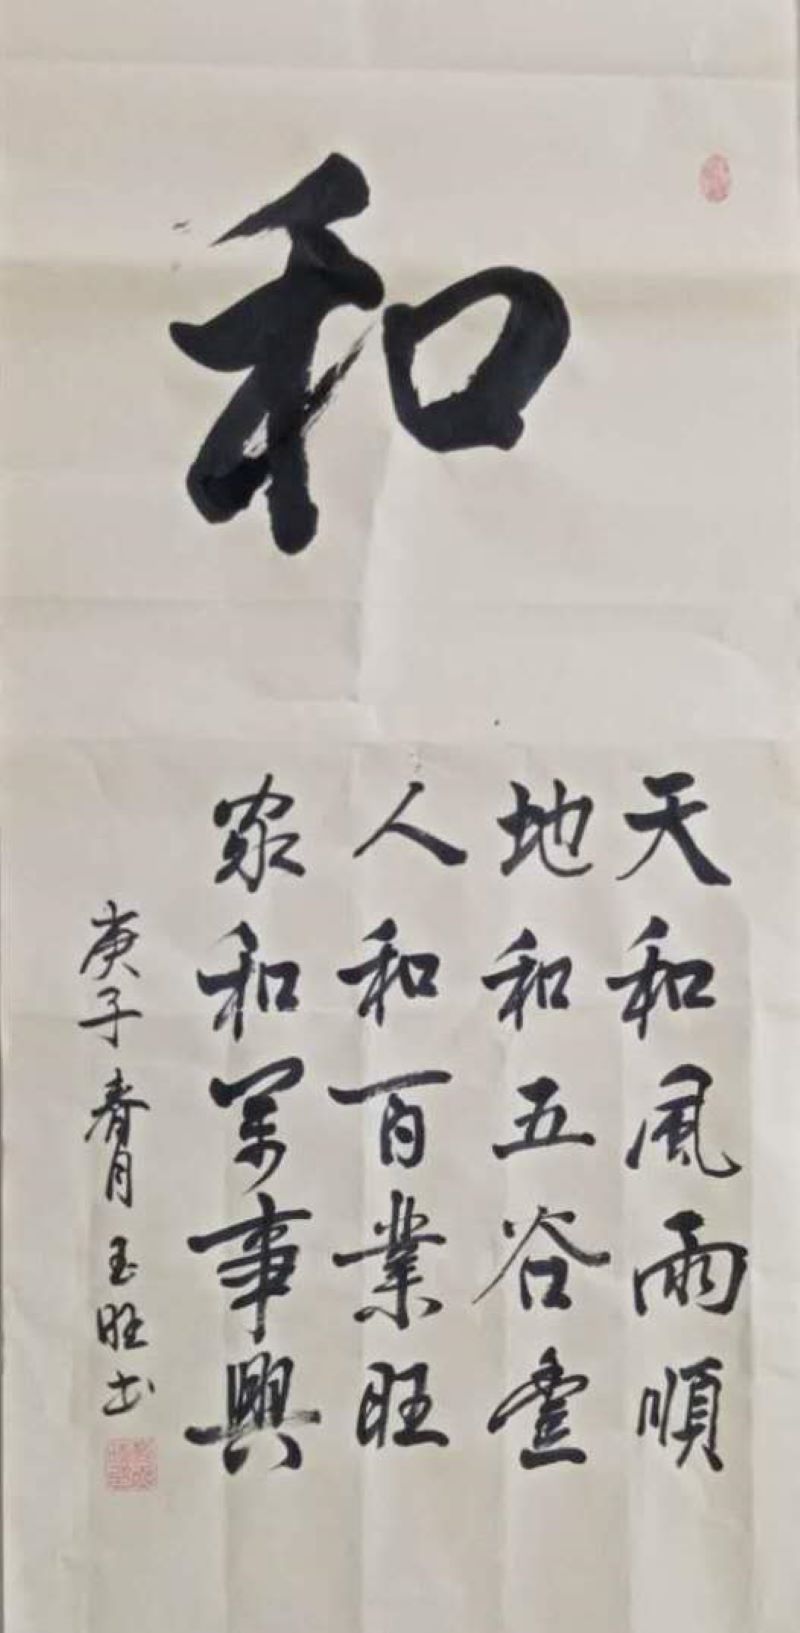 和
天和風雨順
地和五谷豊
人和百業旺
家和萬事興
庚子春月 玉旺书